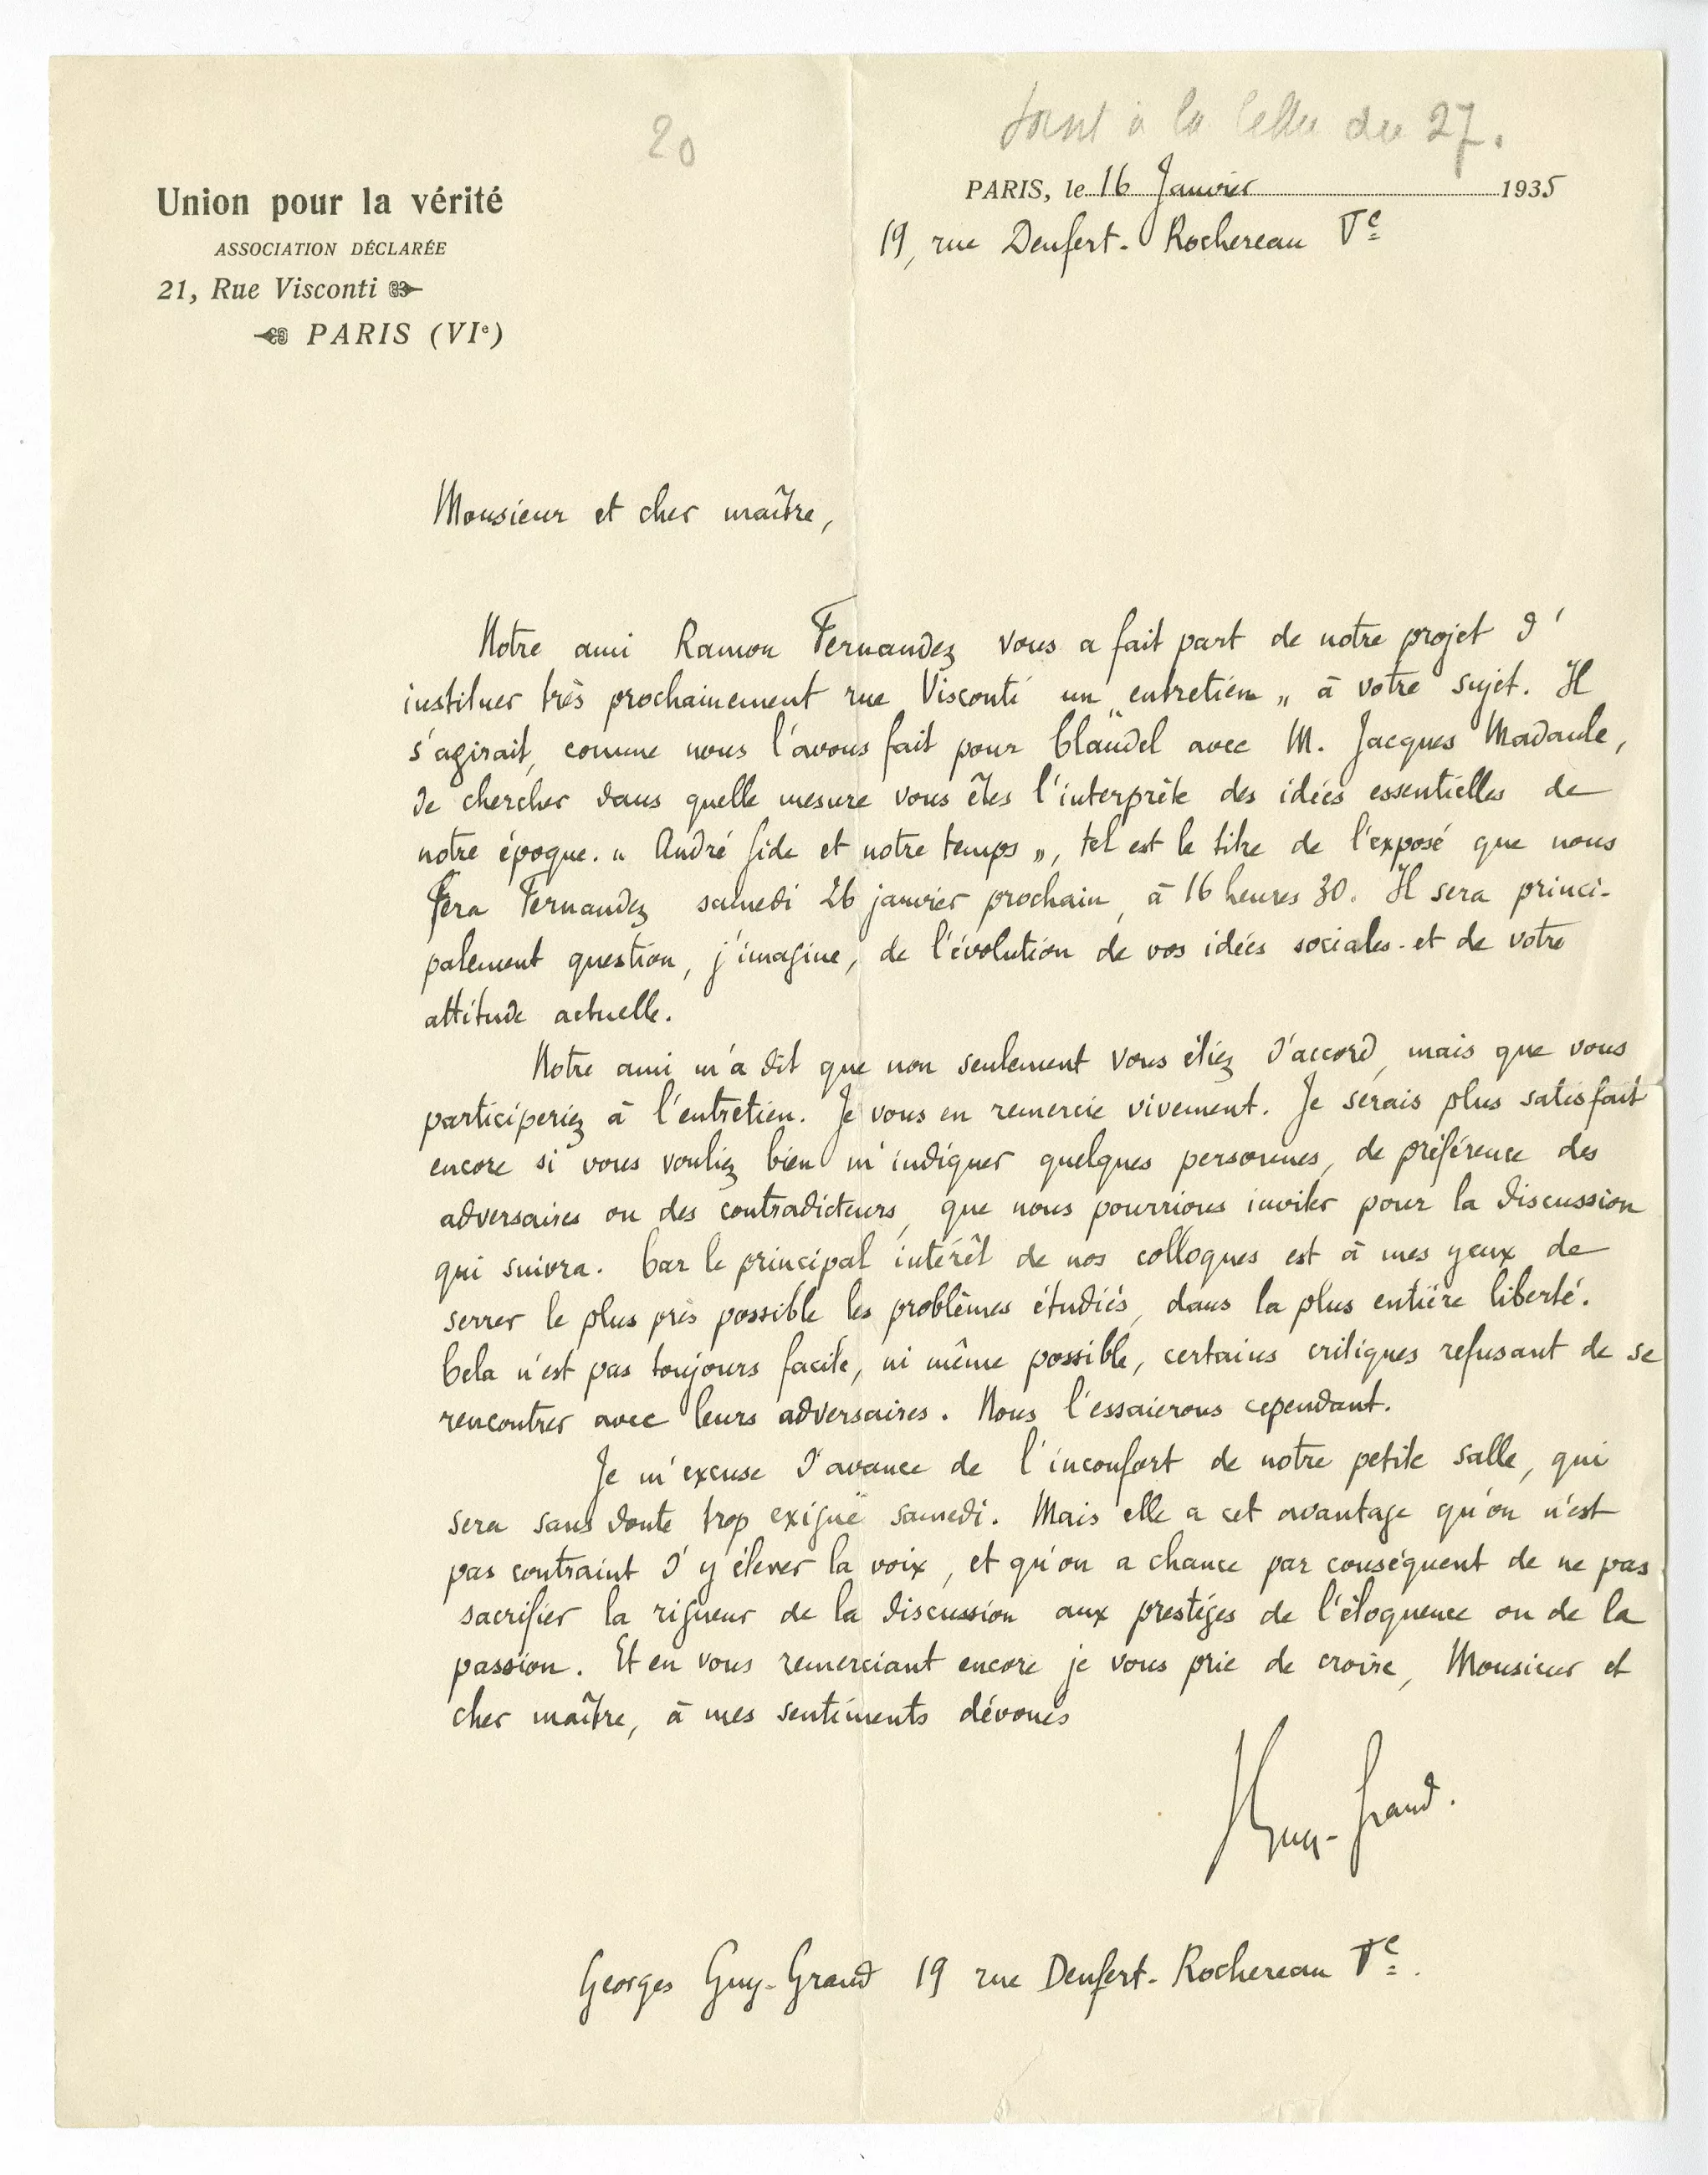 20
joint à la lettre du 27.
Union pour la vérité
ASSOCIATION DÉCLARÉE
21, Rue Visconti
PARIS (VIe)
PARIS, le 16 Janvier 1935
19, rue Denfert-Rochereau Ve
Monsieur et cher maître,
Notre ami Ramon Fernandez vous a fait part de notre projet d'
instituer très prochainement rue Visconti un "entretien" à votre sujet. Il
s'agirait, comme nous l'avons fait pour Claudel avec M. Jacques Madaule,
de chercher dans quelle mesure vous êtes l'interprète des idées essentielles de
notre époque. "André Gide et notre temps", tel est le titre de l'exposé que nous
fera Fernandez samedi 26 janvier prochain, à 16 heures 30. Il sera princi-
palement question, j'imagine, de l'évolution de vos idées sociales et de votre
attitude actuelle.
Notre ami m'a dit que non seulement vous étiez d'accord, mais que vous
participeriez à l'entretien. Je vous en remercie vivement. Je serais plus satisfait
encore si vous vouliez bien m'indiquer quelques personnes, de préférence des
adversaires ou des contradicteurs, que nous pourrions inviter pour la discussion
qui suivra. Car le principal intérêt de nos colloques est à mes yeux de
serrer le plus près possible les problèmes étudiés, dans la plus entière liberté.
Cela n'est pas toujours facile, ni même possible, certains critiques refusant de se
rencontrer avec leurs adversaires. Nous l'essaierons cependant.
Je m'excuse d'avance de l'inconfort de notre petite salle, qui
sera sans doute trop exiguë samedi. Mais elle a cet avantage qu'on n'est
pas contraint d'y élever la voix, et qu'on a chance par conséquent de ne pas
sacrifier la rigueur de la discussion aux prestiges de l'éloquence ou de la
passion. Et en vous remerciant encore je vous prie de croire, Monsieur et
cher maître, à mes sentiments dévoués
Guy-Grand.
Georges Guy-Grand 19 rue Denfert-Rochereau Ve.